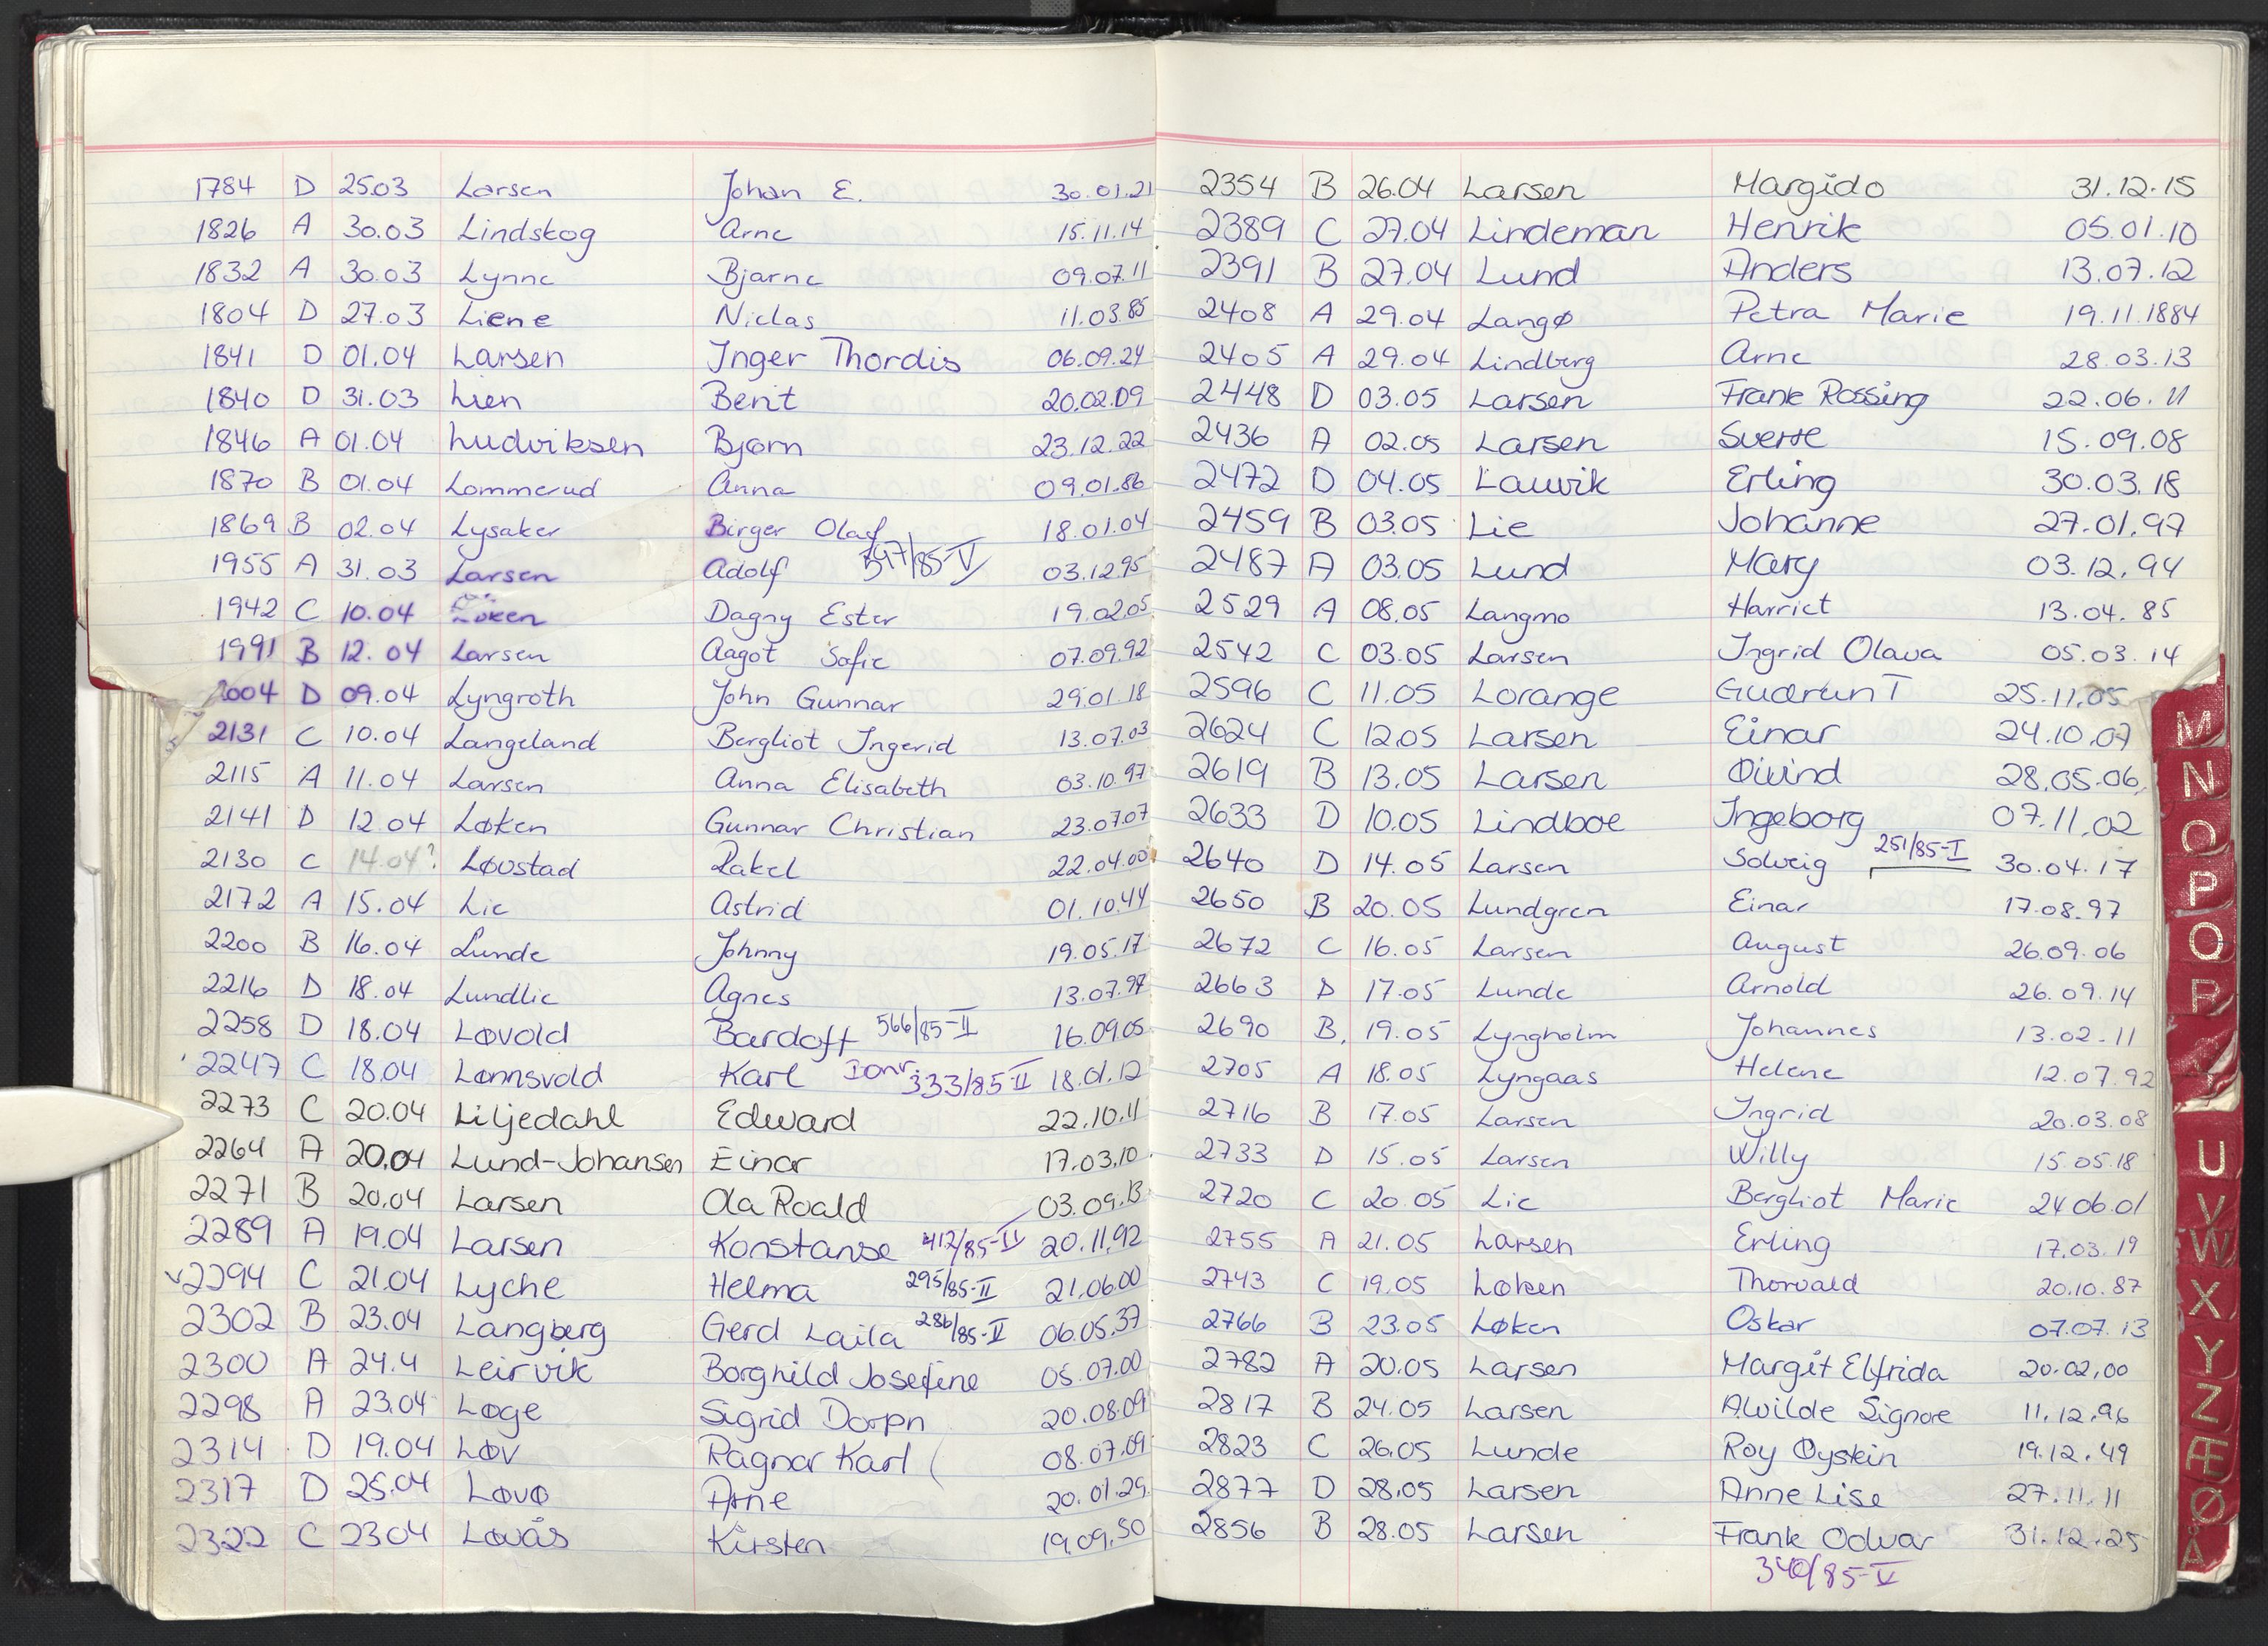 1784 D 25.03 Larsen Johan E. 30.01.21
1826 A 30.03 Lindskog Arne 15.11.14
1832 A 30.03 Lynne Bjarne 09.07.11
1804 D 27.03 Liene Niclas 11.03.85
1841 D 01.04 Larsen Inger Thordis 06.09.24
1840 D 31.03 Lien Berit 20.02.09
1846 A 01.04 Ludviksen Bjørn 23.12.22
1870 B 01.04 Lommerud Anna 09.01.86
1869 B 02.04 Lysaker Birger Olaf 18.01.04
1955 A 31.03 Larsen Adolf 547/85-V 03.12.95
1942 C 10.04 Løken Dagny Ester 19.02.05
1991 B 12.04 Larsen Aagot Sofie 07.09.92
2004 D 09.04 Lyngroth John Gunnar 29.01.18
2131 C 10.04 Langeland Bergliot Ingerid 13.07.03
2115 A 11.04 Larsen Anna Elisabeth 03.10.97
2141 D 12.04 Løken Gunnar Christian 23.07.07
2130 C 14.04? Løvstad Rakel 22.04.00
2172 A 15.04 Lie Astrid 01.10.44
2200 B 16.04 Lunde Johnny 19.05.17
2216 D 18.04 Lundlie Agnes 13.07.97
2258 D 18.04 Løvold Bardoff 566/85-II 16.09.05
2247 C 18.04 Lønnsvold Karl Donr. 333/85-II 18.01.12
2273 C 20.04 Liljedahl Edward 22.10.11
2264 A 20.04 Lund-Johansen Einar 17.03.10
2271 B 20.04 Larsen Ola Roald 03.09.13
2289 A 19.04 Larsen Konstanse 412/85-II 20.11.92
2294 C 21.04 Lyche Helma 295/85-II 21.06.00
2302 B 23.04 Langberg Gerd Laila 286/85-II 06.05.37
2300 A 24.4 Leirvik Borghild Josefine 05.07.00
2298 A 23.04 Løge Sigrid Dorpn 20.08.09
2314 D 19.04 Løv Ragnar Karl 08.07.09
2317 D 25.04 Løvø Arne 20.01.29
2322 C 23 04 Løvås Kirsten 19.09.50
2354 B 26.04 Larsen Margido 31.12.15
2389 C 27.04 Lindeman Henrik 05.01.10
2391 B 27.04 Lund Anders 13.07.12
2408 A 29.04 Langø Petra Marie 19.11.1884
2405 A 29.04 Lindberg Arne 28.03.13
2448 D 03.05 Larsen Frank Rossing 22.06.11
2436 A 02.05 Larsen Sverre 15.09.08
2472 D 04.05 Lauvik Erling 30.03.18
2459 B 03.05 Lie Johanne 27.01.97
2487 A 03.05 Lund Mary 03.12.94
2529 A 08.05 Langmo Harriet 13.04.85
2542 C 03.05 Larsen Ingrid Olava 05.03.14
2596 C 11.05 Lorange Gudrun T 25.11.05
2624 C 12.05 Larsen Einar 24.10.07
2619 B 13.05 Larsen Øivind 28.05.06
2633 D 10.05 Lindboe Ingeborg 07.11.02
2640 D 14.05 Larsen Solveig 251/85-I 30.04.17
2650 B 20.05 Lundgren Einar 17.08.97
2672 C 16.05 Larsen August 26.09.06
2663 D 17.05 Lunde Arnold 26.09.14
2690 B. 19.05 Lyngholm Johannes 13.02.11
2705 A 18.05 Lyngaas Helene 12.07.92
2716 B 17.05 Larsen Ingrid 20.03.08
2733 D 15.05 Larsen Willy 15.05.18
2720 C 20.05 Lie Bergliot Marie 24 06.01
2755 A 21.05 Larsen Erling 17.03.19
2743 C 19.05 Løken Thorvald 20.10.87
2766 B 23.05 Løken Oskar 07.07.13
2782 A 20.05 Larsen Margit Elfrida 20.02.00
2817 B 24.05 Larsen Alvilde Signore 11.12.96
2823 C 26.05 Lunde Roy Øystein 19.12.49
2877 D 28.05 Larsen Anne Lise 27.11.11
2856 B 28.05 Larsen Frank Odvar 31.12.25
340/85-V
M
N
O
P
Q
R
U
V
W
X
Y
Z
Æ
Ø
Å